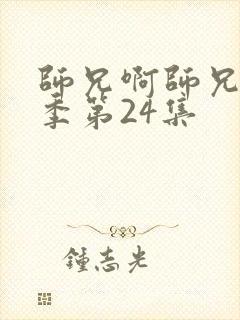 師兄啊師兄
季第24集
鍾志光